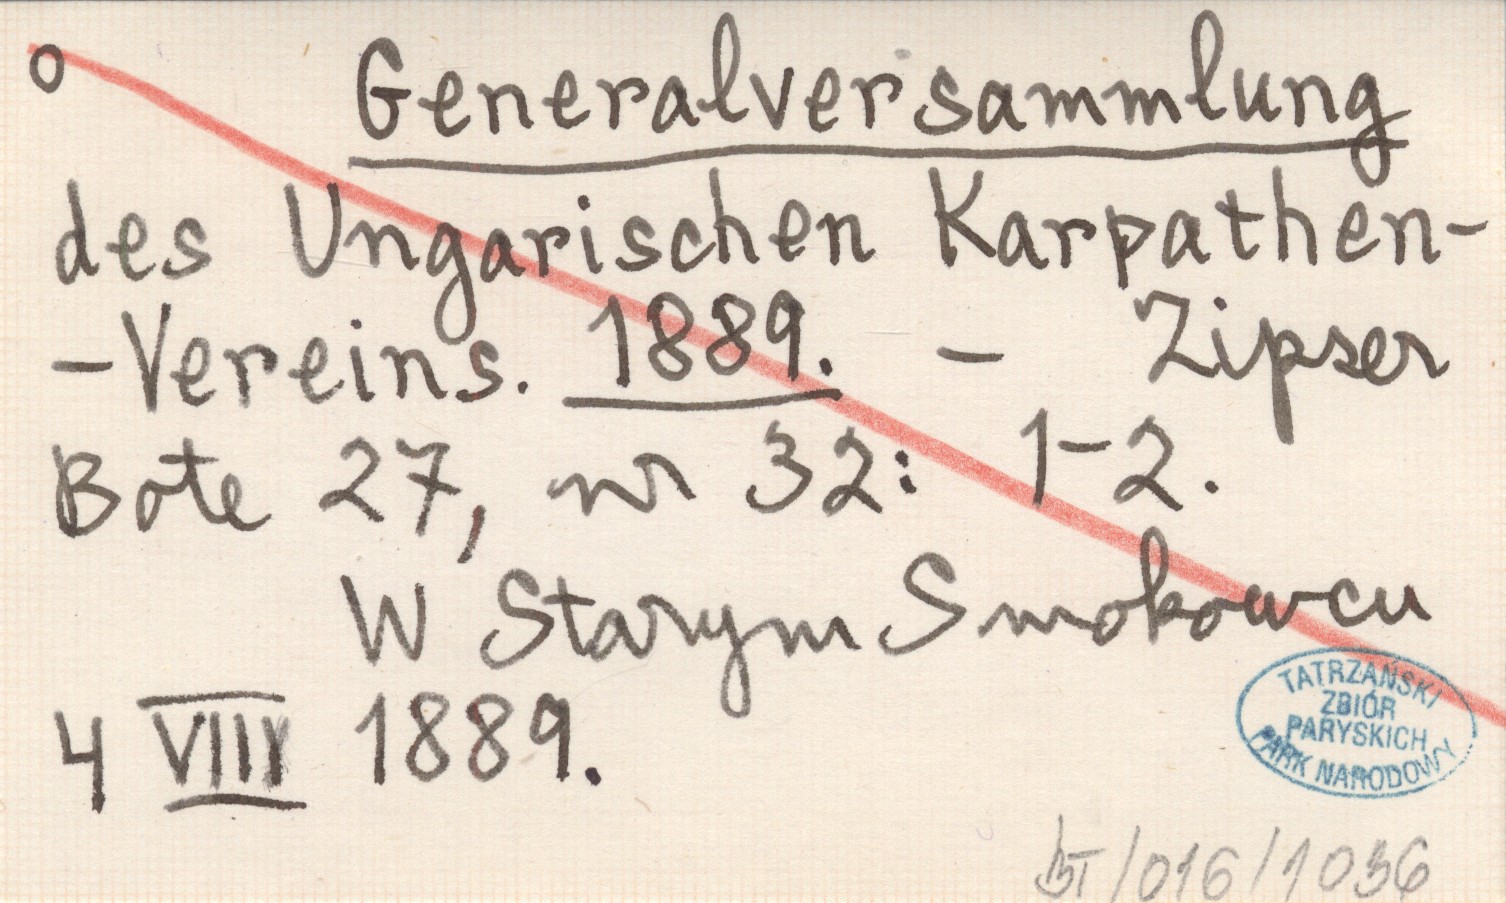 o Generalversammlung
des Ungarischen Karpathen-
-Vereins. 1889. - Zipser
Bote 27, nr 32: 1-2.
W Starym Smokowcu
4 VIII 1889.
TATRZAŃSKI
ZBIÓR
PARYSKICH
PARK NARODOWY
BT/016/1036